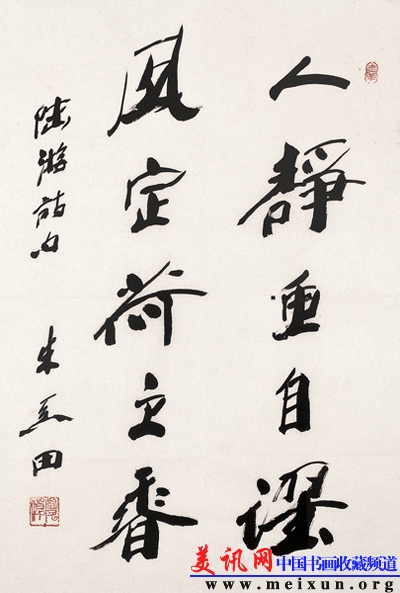 人靜魚自躍
風定荷更香
陸游詩句
朱 田
美讯网 中国书画收藏频道
www.meixun.org